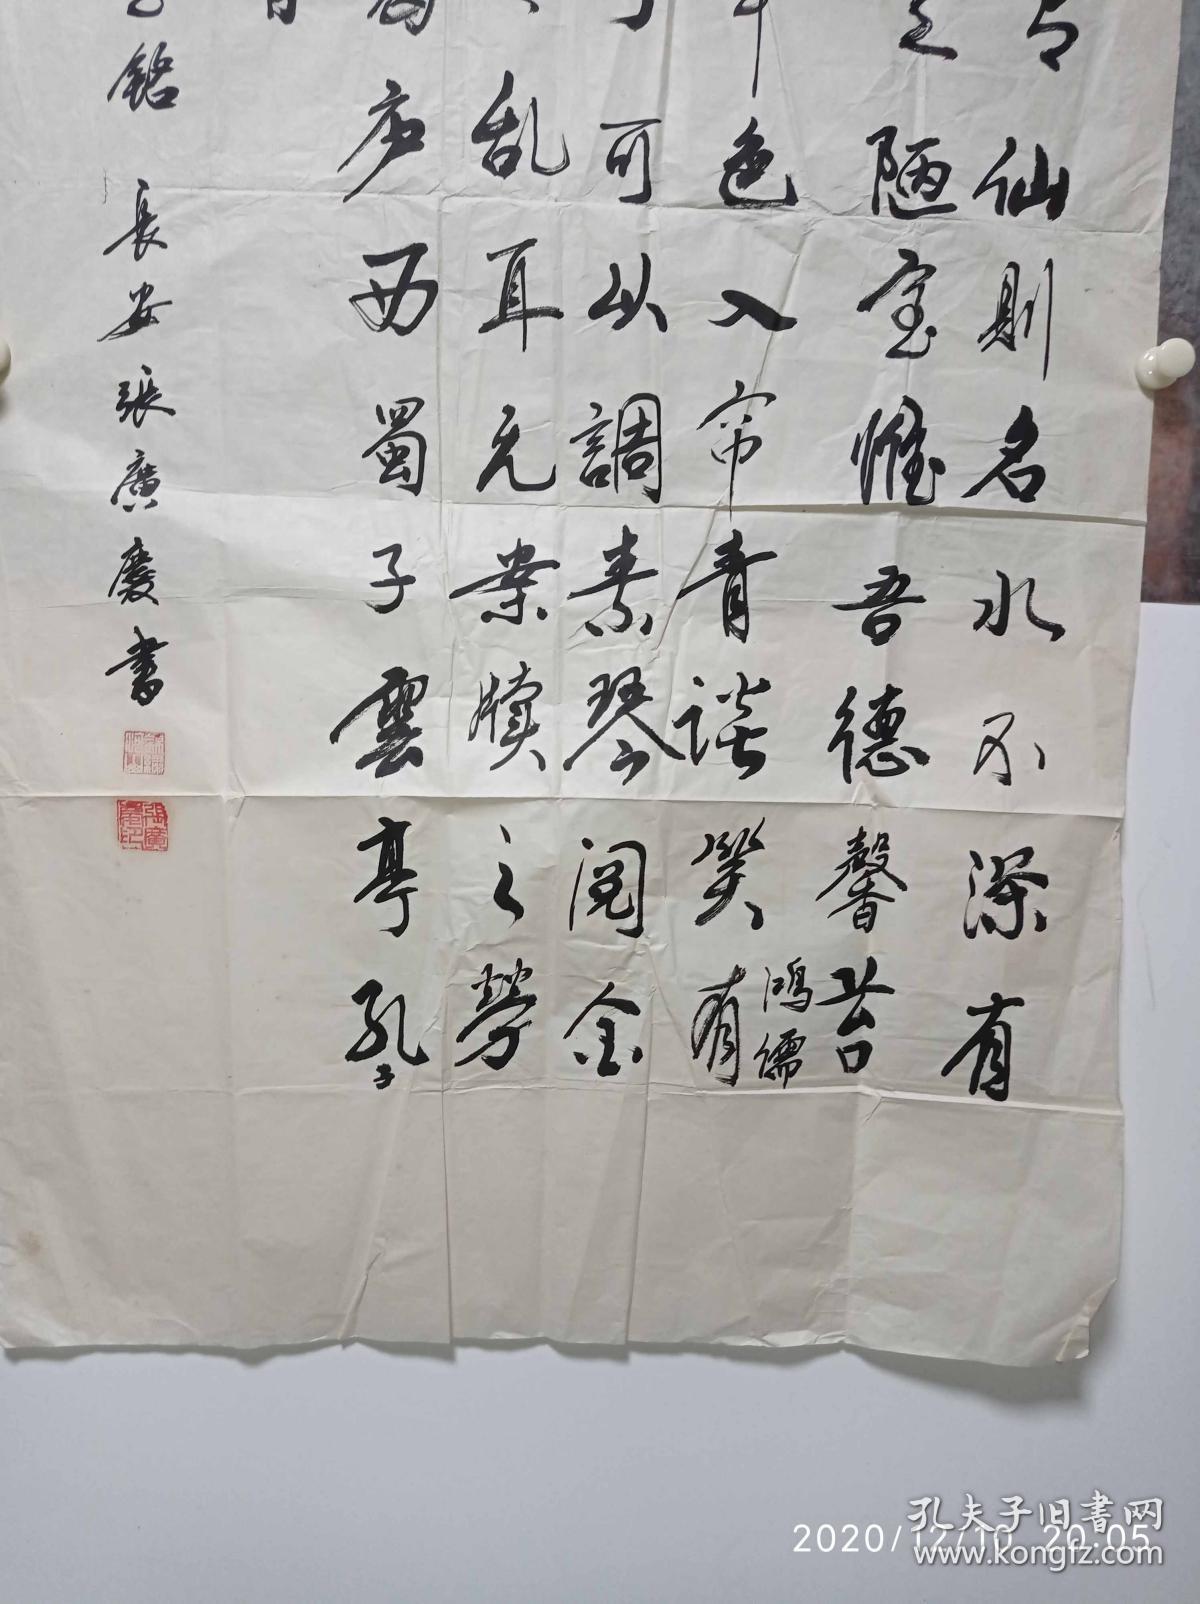 仙则名水不深有
陋室惟吾德馨苔
草色入帘青谈笑有
鸿儒
可以調素琴阅金
乱耳无案牍之劳
庐西蜀子雲亭孔
子
銘 長安張廣慶書
孔夫子旧书网
www.kongfz.com
2020/12/10 20:05